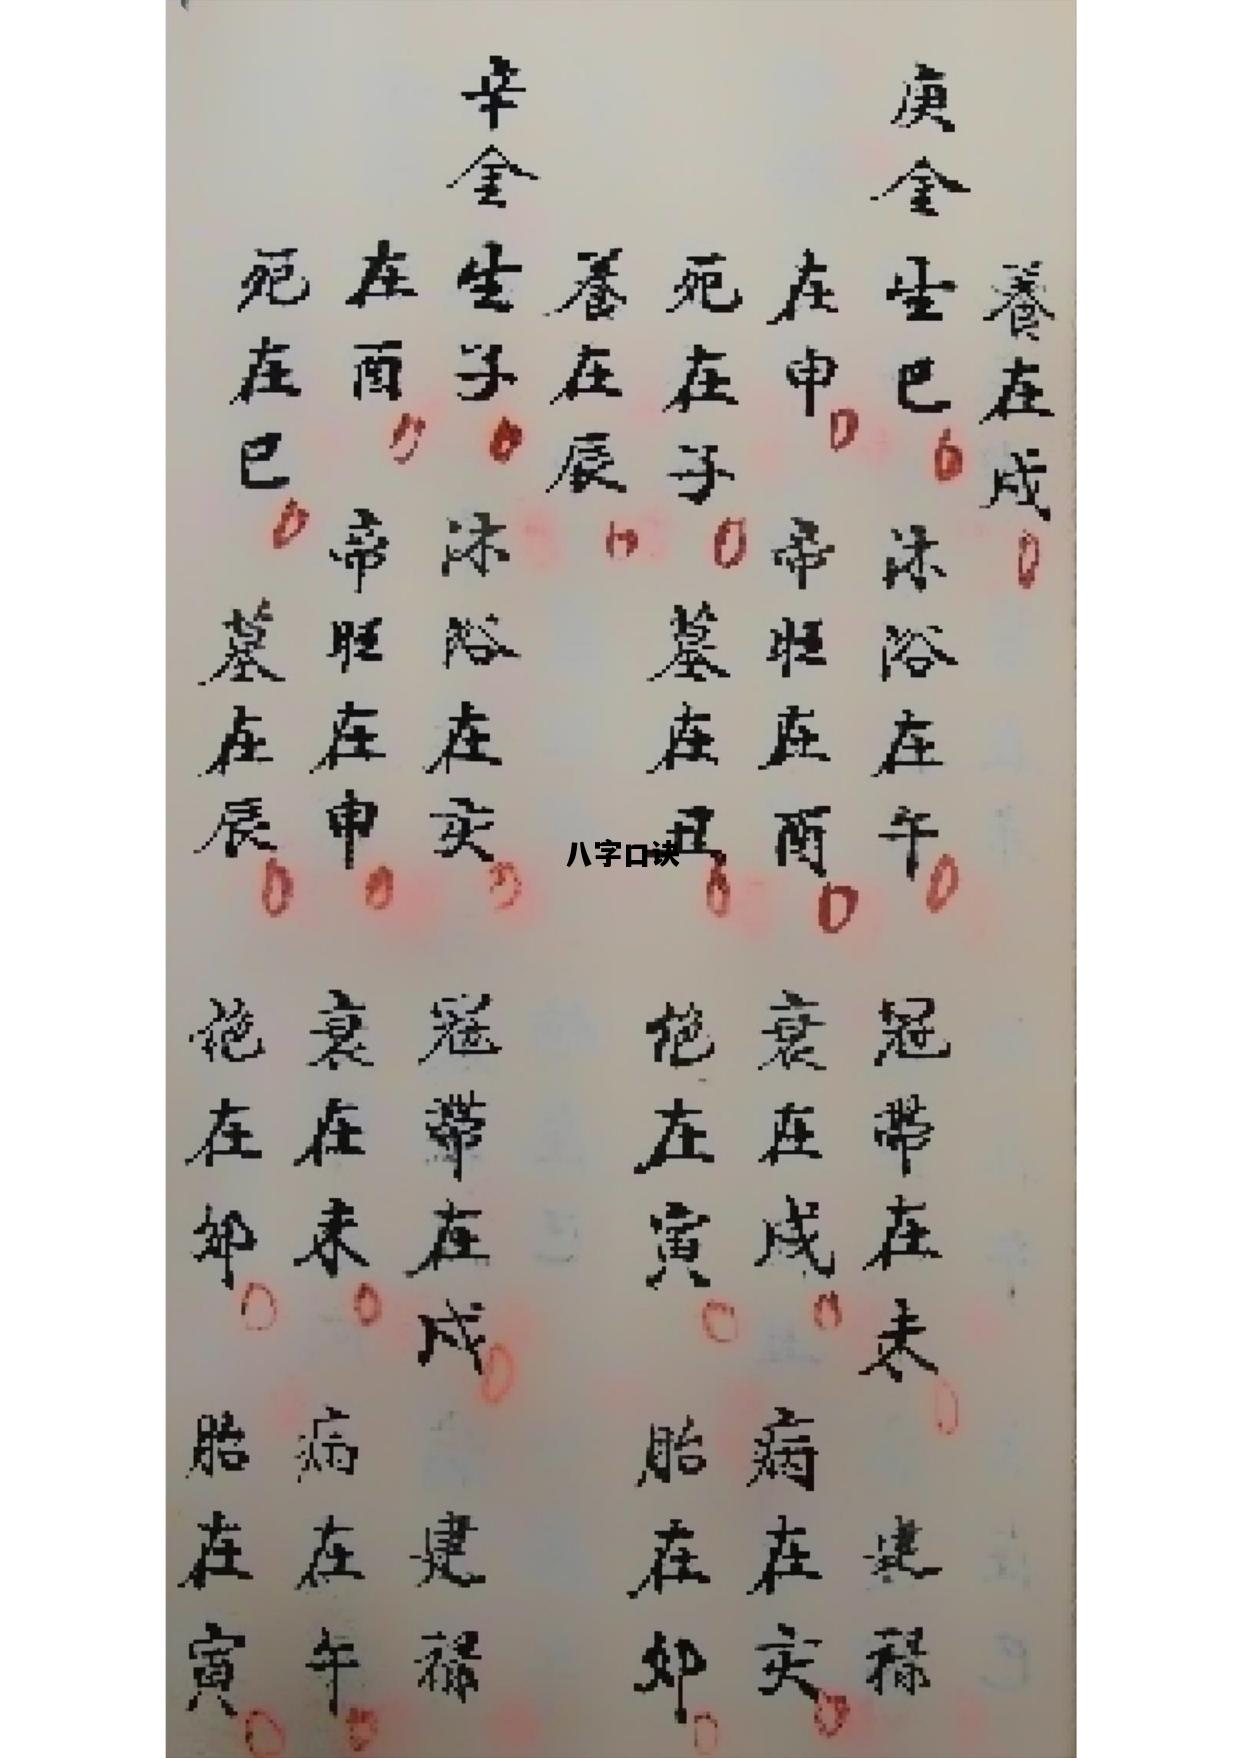 養在戌
庚金 生巳 沐浴在午 冠帶在未 建禄
在申 帝旺在酉 衰在戌 病在亥
死在子 墓在丑 绝在寅 胎在卯
養在辰
辛金 生子 沐浴在亥 冠帶在戌 建禄
在酉 帝旺在申 衰在未 病在午
死在巳 墓在辰 绝在卯 胎在寅
八字口诀